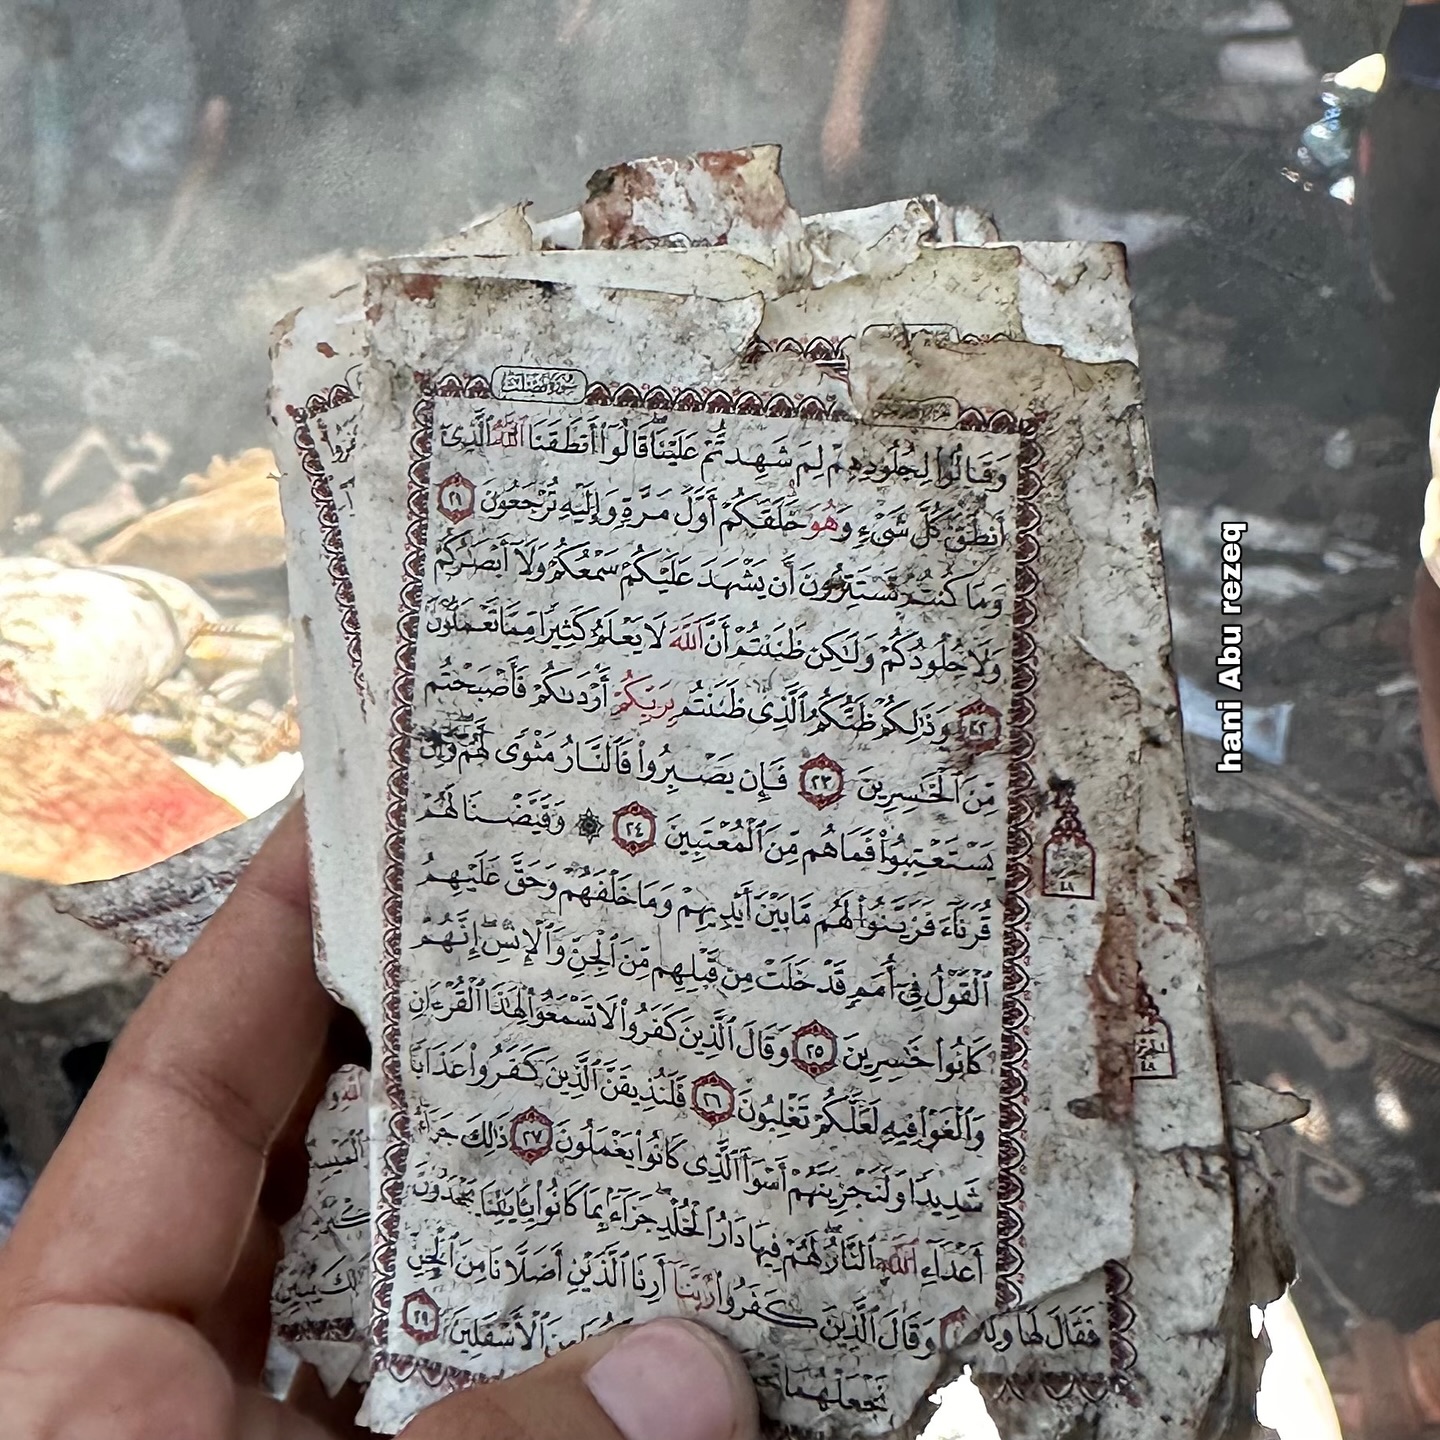 سورة فصلت
وَقَالُوا۟ لِجُلُودِهِمْ لِمَ شَهِدتُّمْ عَلَيْنَا ۖ قَالُوٓا۟ أَنطَقَنَا ٱللَّهُ ٱلَّذِىٓ
أَنطَقَ كُلَّ شَىْءٍ وَهُوَ خَلَقَكُمْ أَوَّلَ مَرَّةٍ وَإِلَيْهِ تُرْجَعُونَ ٢١
وَمَا كُنتُمْ تَسْتَتِرُونَ أَن يَشْهَدَ عَلَيْكُمْ سَمْعُكُمْ وَلَآ أَبْصَـٰرُكُمْ
وَلَا جُلُودُكُمْ وَلَـٰكِن ظَنَنتُمْ أَنَّ ٱللَّهَ لَا يَعْلَمُ كَثِيرًا مِّمَّا تَعْمَلُونَ
٢٢ وَذَٰلِكُمْ ظَنُّكُمُ ٱلَّذِى ظَنَنتُم بِرَبِّكُمْ أَرْدَىٰكُمْ فَأَصْبَحْتُم
مِّنَ ٱلْخَـٰسِرِينَ ٢٣ فَإِن يَصْبِرُوا۟ فَٱلنَّارُ مَثْوًى لَّهُمْ ۖ وَإِن
يَسْتَعْتِبُوا۟ فَمَا هُم مِّنَ ٱلْمُعْتَبِينَ ٢٤ ۞ وَقَيَّضْنَا لَهُمْ
قُرَنَآءَ فَزَيَّنُوا۟ لَهُم مَّا بَيْنَ أَيْدِيهِمْ وَمَا خَلْفَهُمْ وَحَقَّ عَلَيْهِمُ
ٱلْقَوْلُ فِىٓ أُمَمٍ قَدْ خَلَتْ مِن قَبْلِهِم مِّنَ ٱلْجِنِّ وَٱلْإِنسِ ۖ إِنَّهُمْ
كَانُوا۟ خَـٰسِرِينَ ٢٥ وَقَالَ ٱلَّذِينَ كَفَرُوا۟ لَا تَسْمَعُوا۟ لِهَـٰذَا ٱلْقُرْءَانِ
وَٱلْغَوْا۟ فِيهِ لَعَلَّكُمْ تَغْلِبُونَ ٢٦ فَلَنُذِيقَنَّ ٱلَّذِينَ كَفَرُوا۟ عَذَابًا
شَدِيدًا وَلَنَجْزِيَنَّهُمْ أَسْوَأَ ٱلَّذِى كَانُوا۟ يَعْمَلُونَ ٢٧ ذَٰلِكَ جَزَآءُ
أَعْدَآءِ ٱللَّهِ ٱلنَّارُ ۖ لَهُمْ فِيهَا دَارُ ٱلْخُلْدِ ۖ جَزَآءًۢ بِمَا كَانُوا۟ بِـَٔايَـٰتِنَا يَجْحَدُونَ
وَقَالَ ٱلَّذِينَ كَفَرُوا۟ رَبَّنَآ أَرِنَا ٱلَّذَيْنِ أَضَلَّانَا مِنَ ٱلْجِنِّ
نَجْعَلْهُمَا
مِنَ ٱلْأَسْفَلِينَ ٢٩
فَقَالَ لَهَا وَلِ
٤٨
hani Abu rezeq